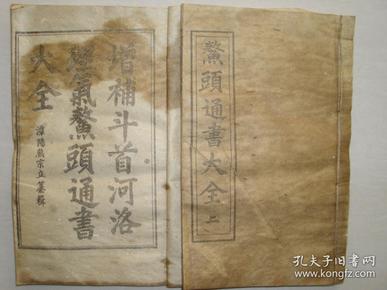 增補斗首河洛
理氣鰲頭通書
大全
潭陽熊宗立纂輯
鰲頭通書大全 二
孔夫子旧书网
www.kongfz.com